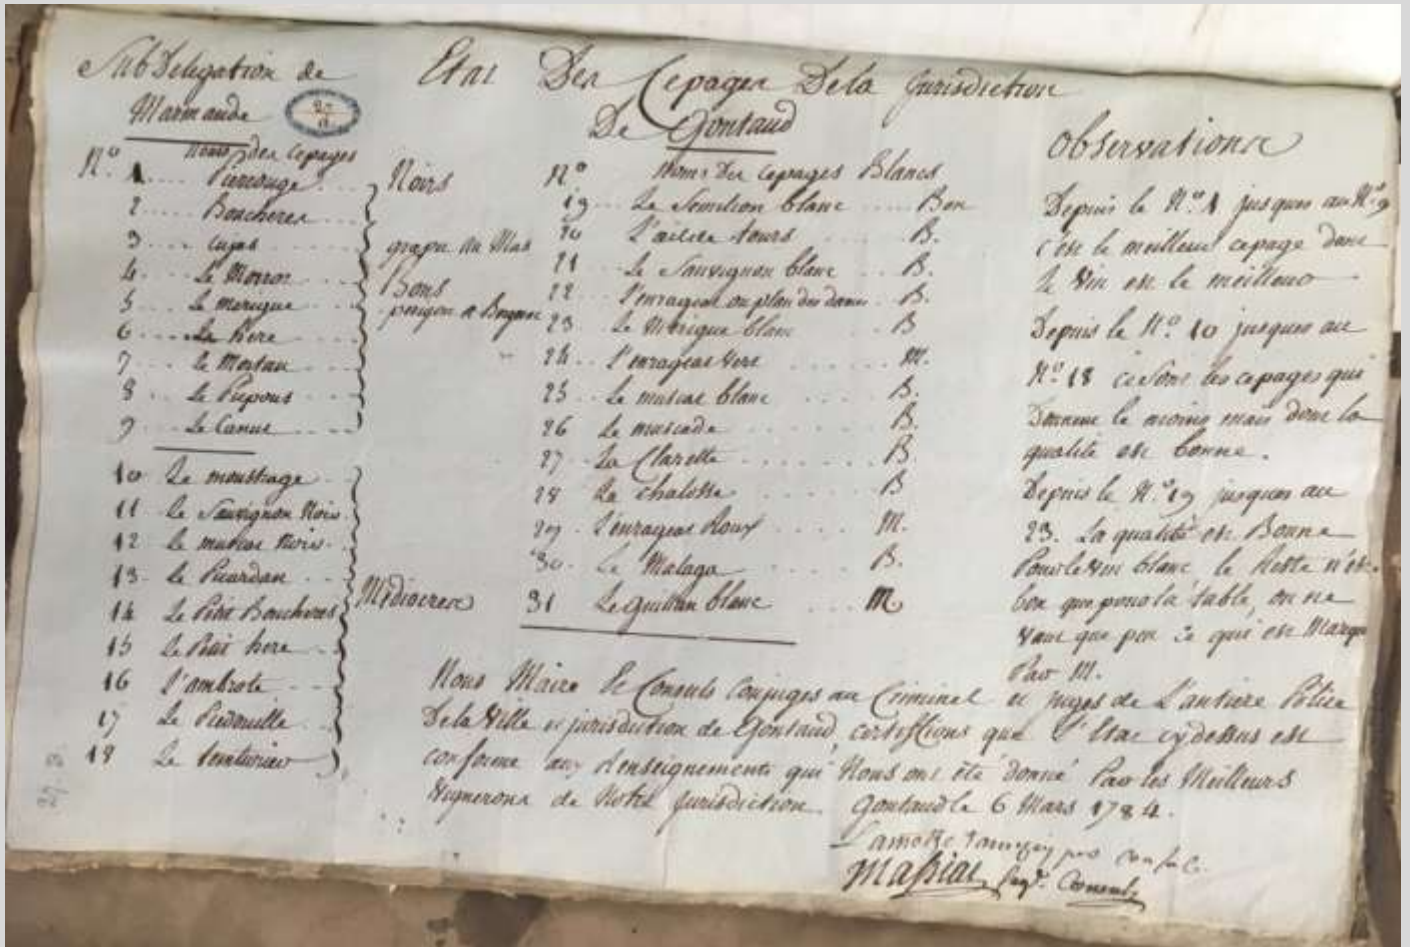 SubDelegation de
Marmande
Etat Des Cepages De la Jurisdiction
De Gontaud
Observations
N.º Noms des Cepages
1 .... Pierrouge ....
2 .... Boucheres ....
3 .... Cujas ....
4 .... Le Morror ....
5 .... Le merigue ....
6 .... Le here ....
7 .... le Mortau ....
8 .... Le Piepous ....
9 .... Le Canut ....
Noirs
grapu du Mas
Bons
10 Le moustrage ....
11 Le Sauvignon Noir.
12 Le muscat Noir.
13. Le Picardan ....
14 Le Petit Boucheres
15 Le Petit here ...
16 L'ambrote ....
17 Le Piedouille ....
18 Le teinturier
Mediocres
N.º Noms Des Cepages Blancs
19 ... Le Semilion blanc .... Bon
20 .... B.
21 Le Sauvignon blanc ... B.
22 l'enrageat ou plan des dames .. B.
23 .. Le Merigue blanc B
24 .. l'enrageat vert .... M.
25 .. Le muscat blanc .... B.
26 Le muscade .... B.
27 .. La Clarette .... B
28 La chalosse .... B
29 .. L'enrageat Roux .... M.
30 .. Le Malaga .... B.
31 Le Guillan blanc ... M
Depuis le N.º 1 jusques au N.º 9
c'est le meilleur cepage dont
le vin est le meilleur
Depuis le N.º 10 jusques au
N.º 18 ce sont les cepages qui
Donnent le moins mais dont la
qualité est bonne.
Depuis le N.º 19 jusques au
23. La qualité est Bonne
Pour le vin blanc le Reste n'est
bon que pour la table, on ne
vaut que peu ce qui est Marqué
Par M.
Nous Maire Et Consuls Conjuges au Criminel et juges de L'antiere Police
De la Ville et jurisdiction de Gontaud, certiffions que l'Etat cydessus est
conforme aux Renseignements qui Nous ont été donné Par les Meilleurs
Vignerons de Notre Jurisdiction. Gontaud le 6 Mars 1784.
Massias
27. B.